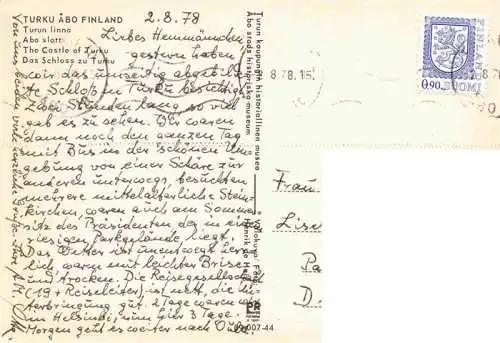 TURKU ÅBO FINLAND
Turun linna
Åbo slott
The Castle of Turku
Das Schloss zu Turku
2.8.78
Liebes Hennmännchen,
gestern haben
wir das umseitig abgebilde-
te Schloß in Turku besichtigt.
Zwei Stunden lang, so viel
gab es zu sehen. Wir waren
dann noch den ganzen Tag
mit Bus in der schönen Um-
gebung von einer Schäre zur
anderen unterwegs, besuchten
mehrere mittelalterliche Stein-
kirchen, waren auch am Sommer-
sitz des Präsidenten, der in ei
riesigen Parkgelände, liegt.
Das Wetter ist unentwegt herr-
lich warm mit leichter Brise
und trocken. Die Reisegesellschaft
(19 + Reiseleiter) ist nett, die Un-
terbringung gut. 2 Tage waren wir
im Helsinki, nun hier 3 Tage.
Morgen geht es weiter nach
Von uns beiden viele herzliche Grüße, Ihre
Turun kaupungin historiallinen museo
Åbo stads historiska museum
PR
007-44
8.78.15
FINLAND
0,90 SUOMI
Frau
Lise
Pa
D